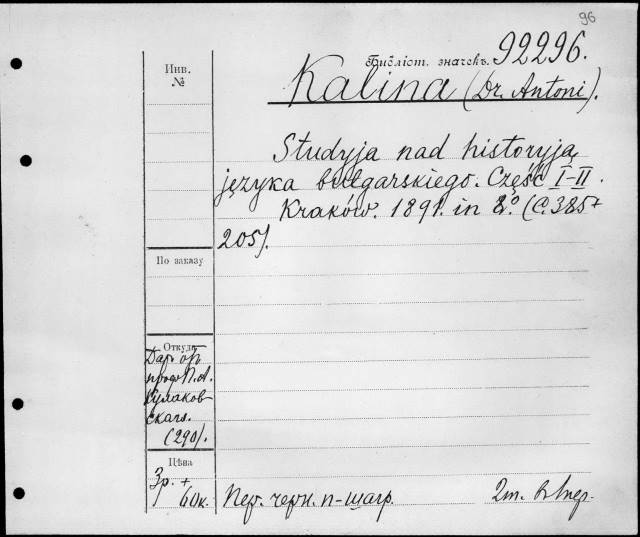 96
Библіот. значекъ. 92296.
Инв.
№
Kalina (Dr. Antoni).
Studyja nad historyją
języka bulgarskiego. Część I-II.
Kraków. 1891. in 8º. (С. 385+
205).
По заказу
Откуда
Даръ отъ
проф. П. А.
Кулаков-
скаго.
(290).
Цѣна
3р. +
60к.
Пер. черн. п-шагр.
2т. в 1 пер.